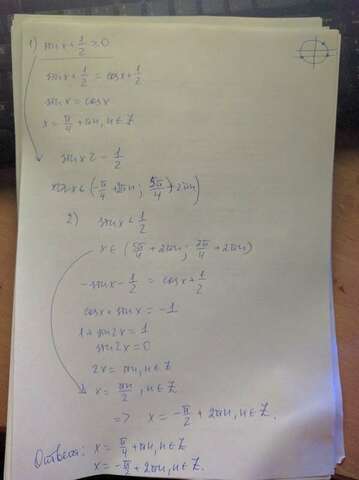 1) sin x + 1/2 ≥ 0
sin x + 1/2 = cos x + 1/2
sin x = cos x
x = π/4 + πn, n ∈ Z
sin x ≥ - 1/2
x ∈ (-π/4 + 2πn; 5π/4 + 2πn)
2) sin x < 1/2
x ∈ (5π/4 + 2πn; 7π/4 + 2πn)
-sin x - 1/2 = cos x + 1/2
cos x + sin x = -1
1 + sin 2x = 1
sin 2x = 0
2x = πn, n ∈ Z
x = πn/2, n ∈ Z
=> x = -π/2 + 2πn, n ∈ Z.
Ответ: x = π/4 + πn, n ∈ Z
x = -π/2 + 2πn, n ∈ Z.